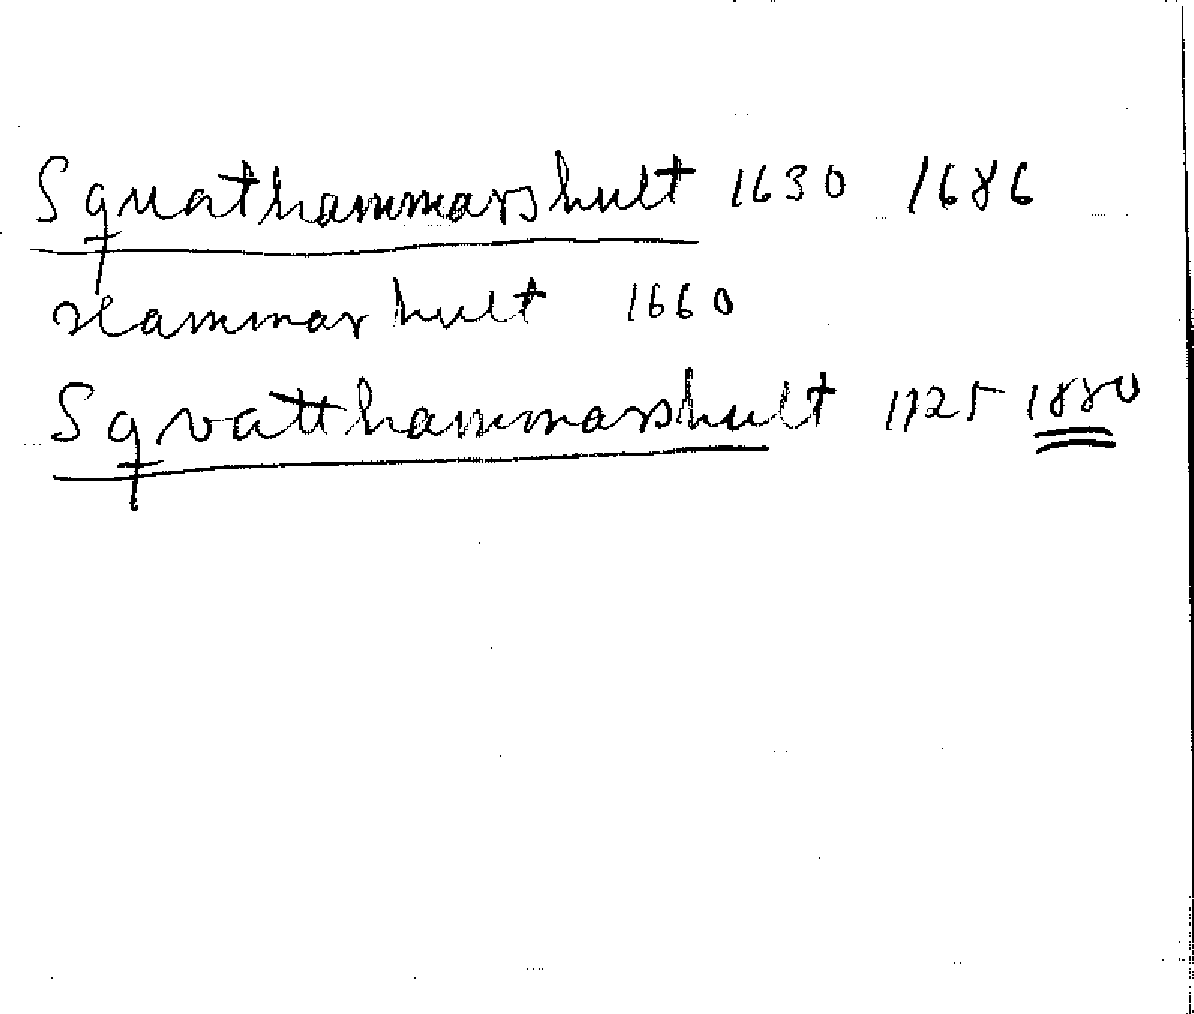 Sqvathammarshult 1630 1686
Hammarhult 1660
Sqvatthammarshult 1725 1880